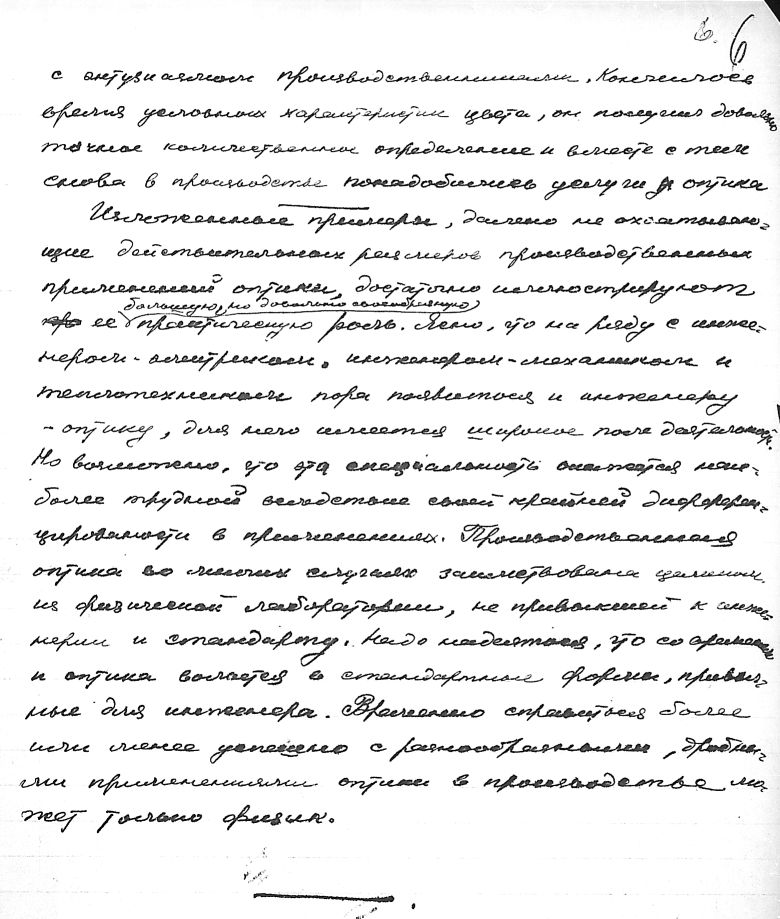 6. 6
с энтузиазмом производственниками. Кончилось
время условных характеристик цвета, он получил довольно
точное количественное определение и вместе с тем
снова в производстве понадобились услуги оптика
Изложенные примеры, далеко не охватываю-
щие действительных размеров производственных
применений оптики, достаточно иллюстрируют
большую, но довольно своеобразную
ее практическую роль. Ясно, что на ряду с инже-
нером-электриком, инженером-механиком и
теплотехником пора появиться и инженеру
-оптику, для него имеется широкое поле деятельности.
Но возможно, что эта специальность окажется наи-
более трудной вследствие своей крайней дифферен-
цированности в применениях. Производственная
оптика во многих случаях заимствована целиком
из физической лаборатории, не привыкшей к инже-
нерии и стандарту. Надо надеяться, что со временем
и оптика вольется в стандартные формы, привыч-
ные для инженера. Временно справиться более
или менее успешно с разнообразными, дробны-
ми применениями оптики в производстве мо-
жет только физик.